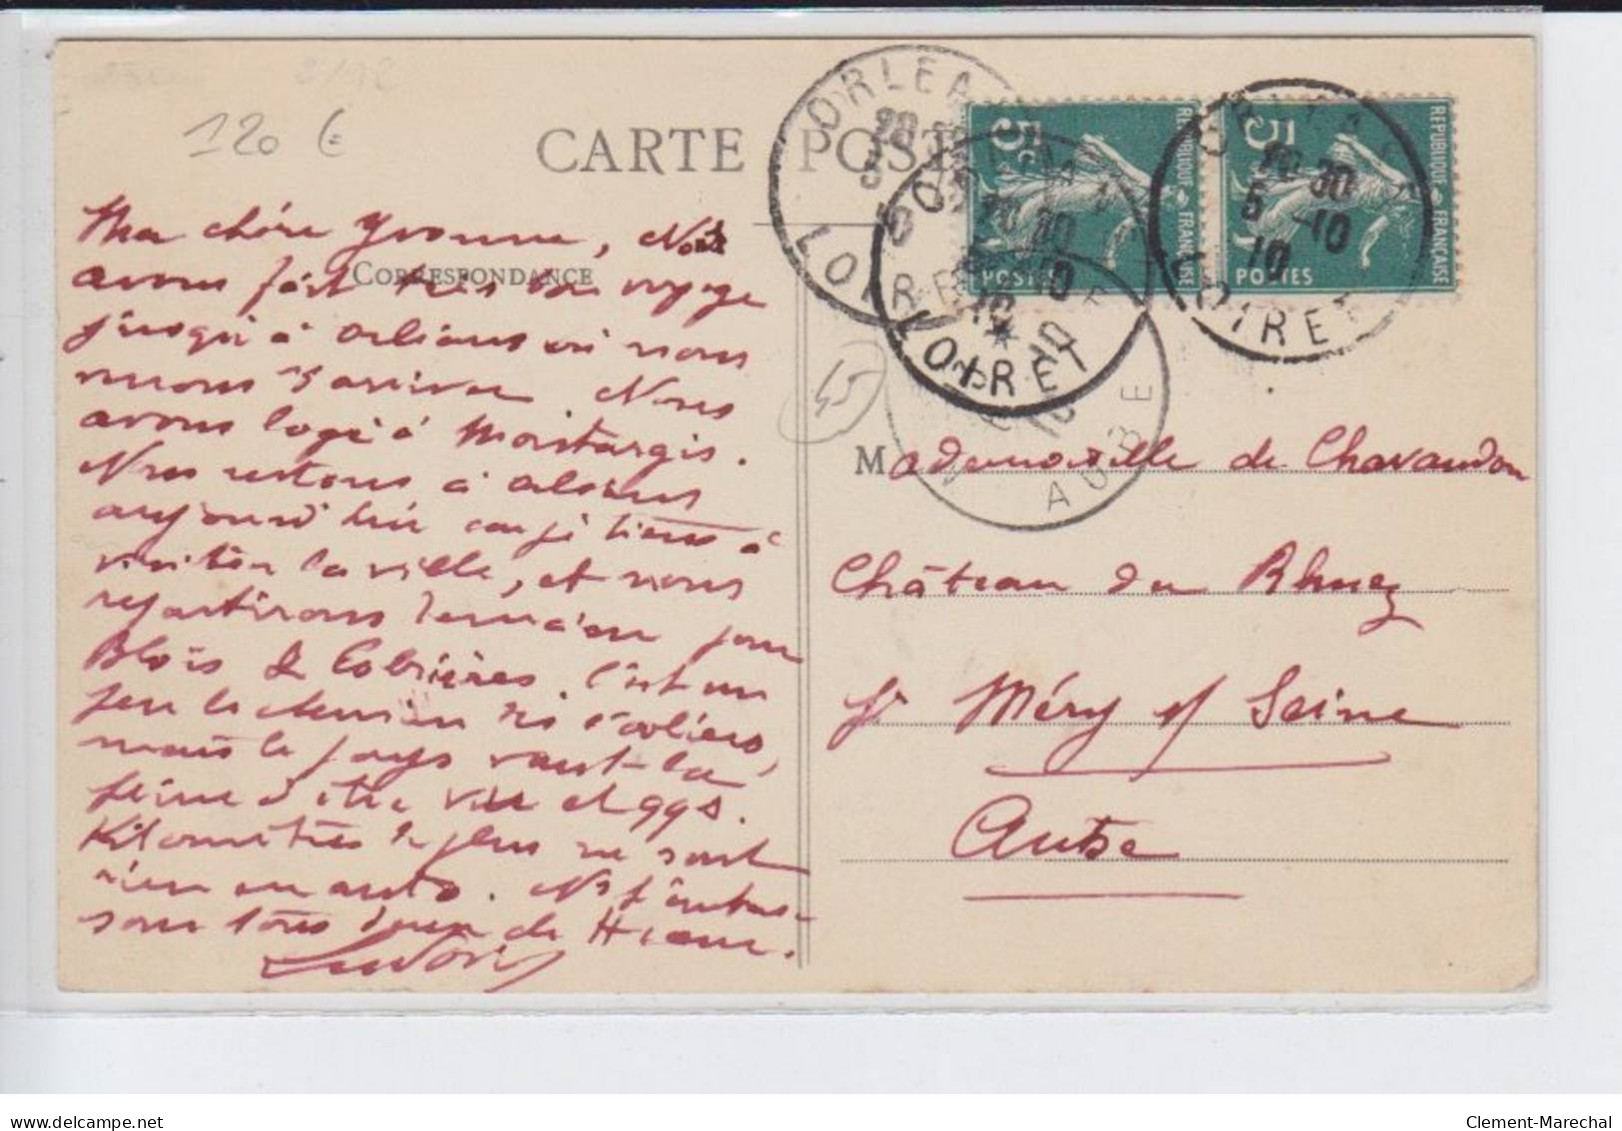 120 €
CARTE POST
CORRESPONDANCE
Ma chère Yvonne, Nous
avons fait très bon voyage
jusqu'à Orléans où nous
venons d'arriver. Nous
avons logé à Montargis.
Nous restons à Orléans
aujourd'hui car je tiens à
visiter la ville, et nous
repartirons demain pour
Blois &
C'est un
peu le chemin des écoliers,
mais le pays vaut la
peine d'être vu et qqs.
Kilomètres de plus ne sont
rien en auto. Ns t'embras-
sons tous deux de
ORLEA
LOIRET
5c
REPUBLIQUE FRANÇAISE
POSTES
LOIRET
20 30
5 -10
10
5c
REPUBLIQUE FRANÇAISE
POSTES
AUBE
45
Mademoiselle de Chavaudon
Château du Rhuez
pr Méry s/ Seine
Aube
Clement-Marechal